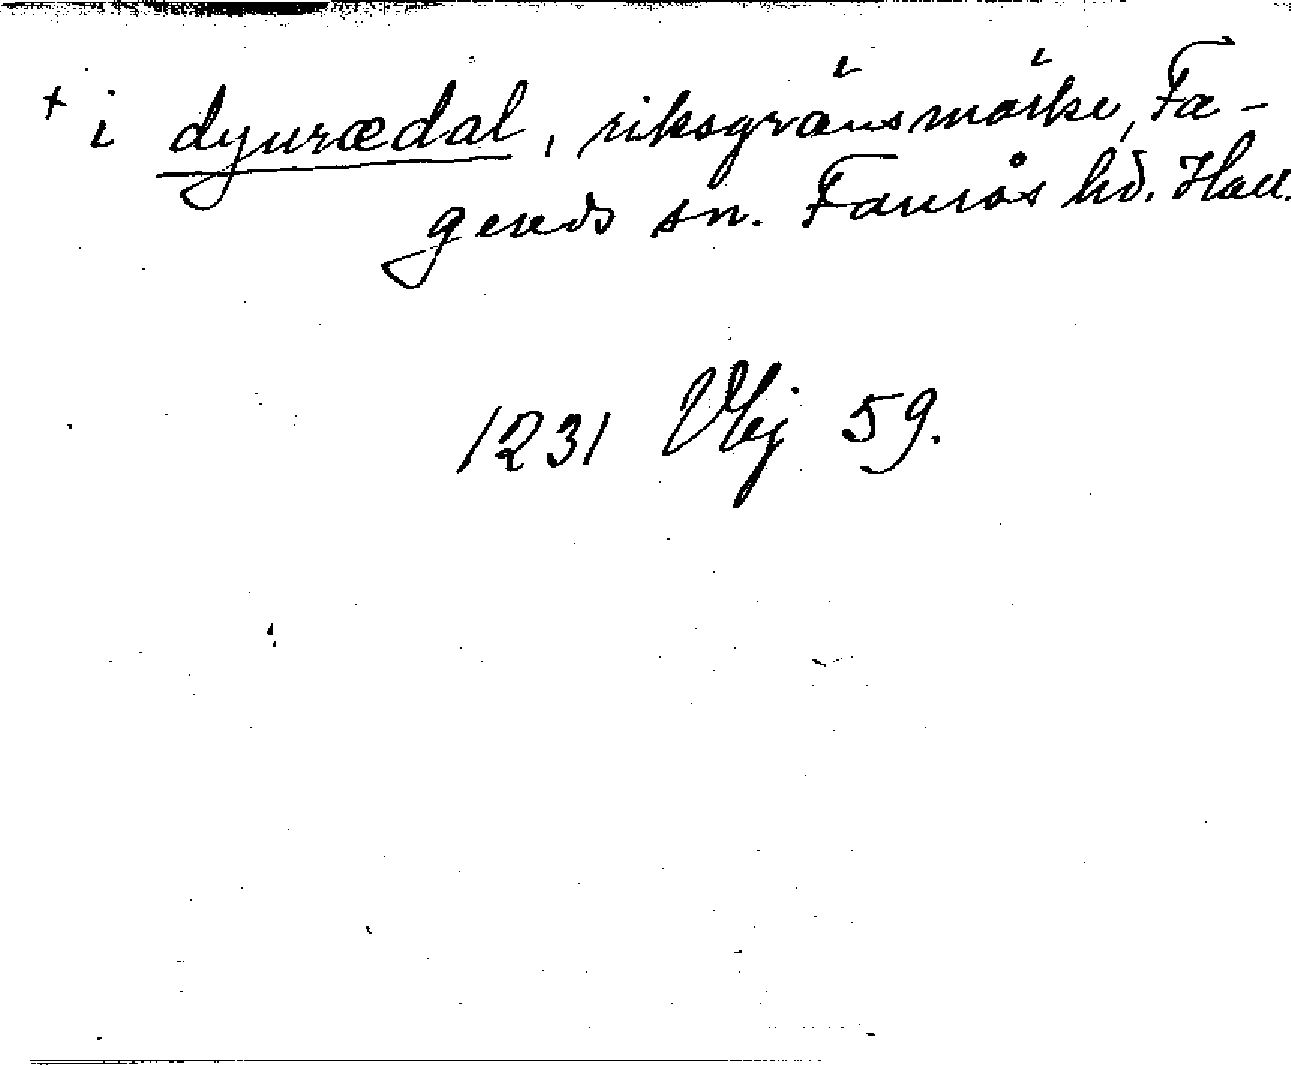 + i dyurædal, riksgränsmärke, Fa-
gereds sn. Faurås hd. Hall.
1231 Vbj 59.